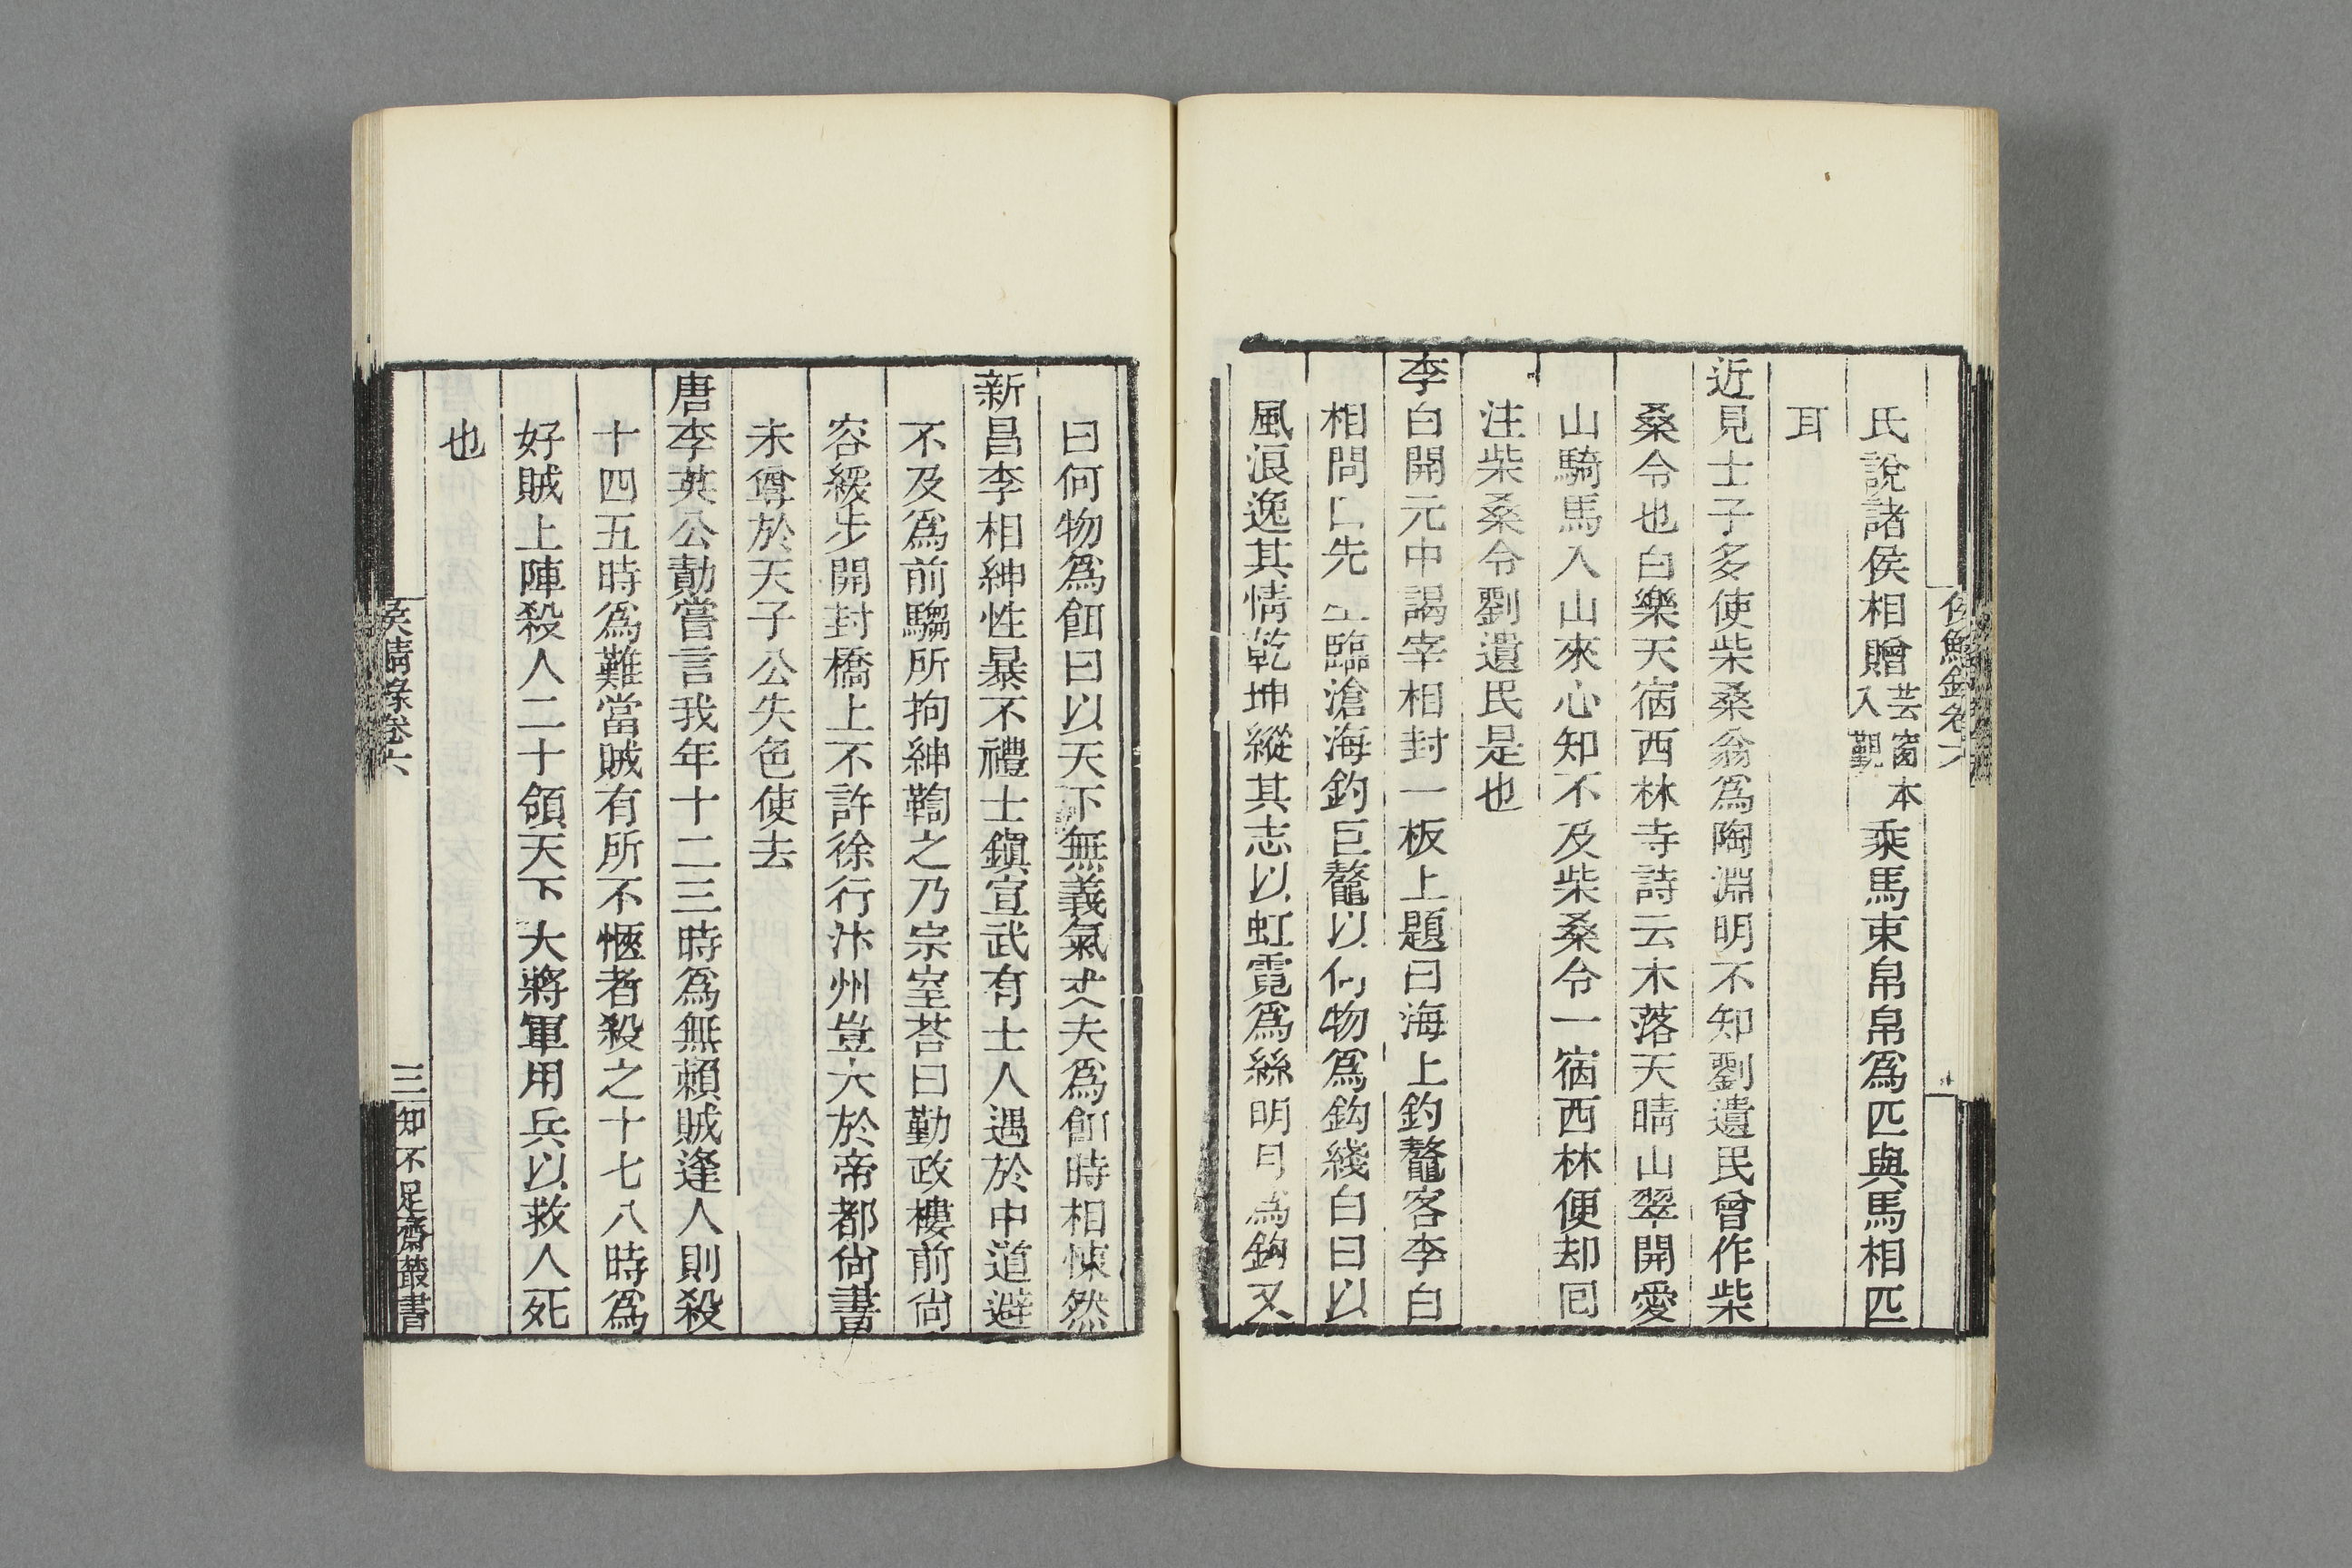 氏說諸侯相贈芸窗本入觀乘馬束帛帛爲匹與馬相匹
耳
近見士子多使柴桑翁爲陶淵明不知劉遺民曾作柴
桑令也白樂天宿西林寺詩云木落天晴山翠開愛
山騎馬入山來心知不及柴桑令一宿西林便却回
注柴桑令劉遺民是也
李白開元中謁宰相封一板上題曰海上釣鼇客李白
相問曰先生臨滄海釣巨鼇以何物爲鈎綫白曰以
風浪逸其情乾坤縱其志以虹霓爲絲明月爲鈎又
曰何物爲餌曰以天下無義氣丈夫爲餌時相悚然
新昌李相紳性暴不禮士鎭宣武有士人遇於中道避
不及爲前騶所拘紳鞫之乃宗室荅曰勤政樓前尙
容緩步開封橋上不許徐行汴州豈大於帝都尙書
未尊於天子公失色使去
唐李英公勣嘗言我年十二三時爲無賴賊逢人則殺
十四五時爲難當賊有所不愜者殺之十七八時爲
好賊上陣殺人二十領天下大將軍用兵以救人死
也
侯鯖錄卷六
三
知不足齋叢書